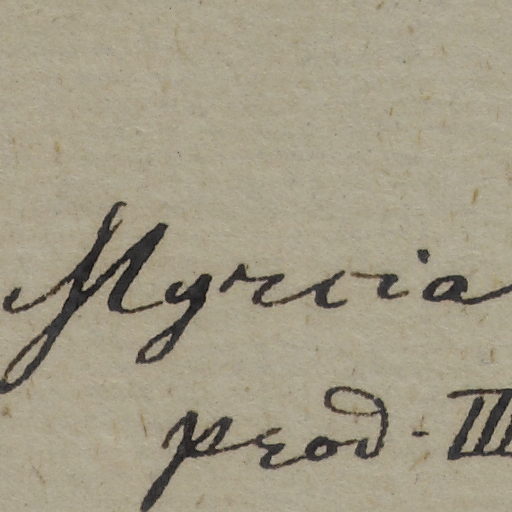 Myrcia
prod. III